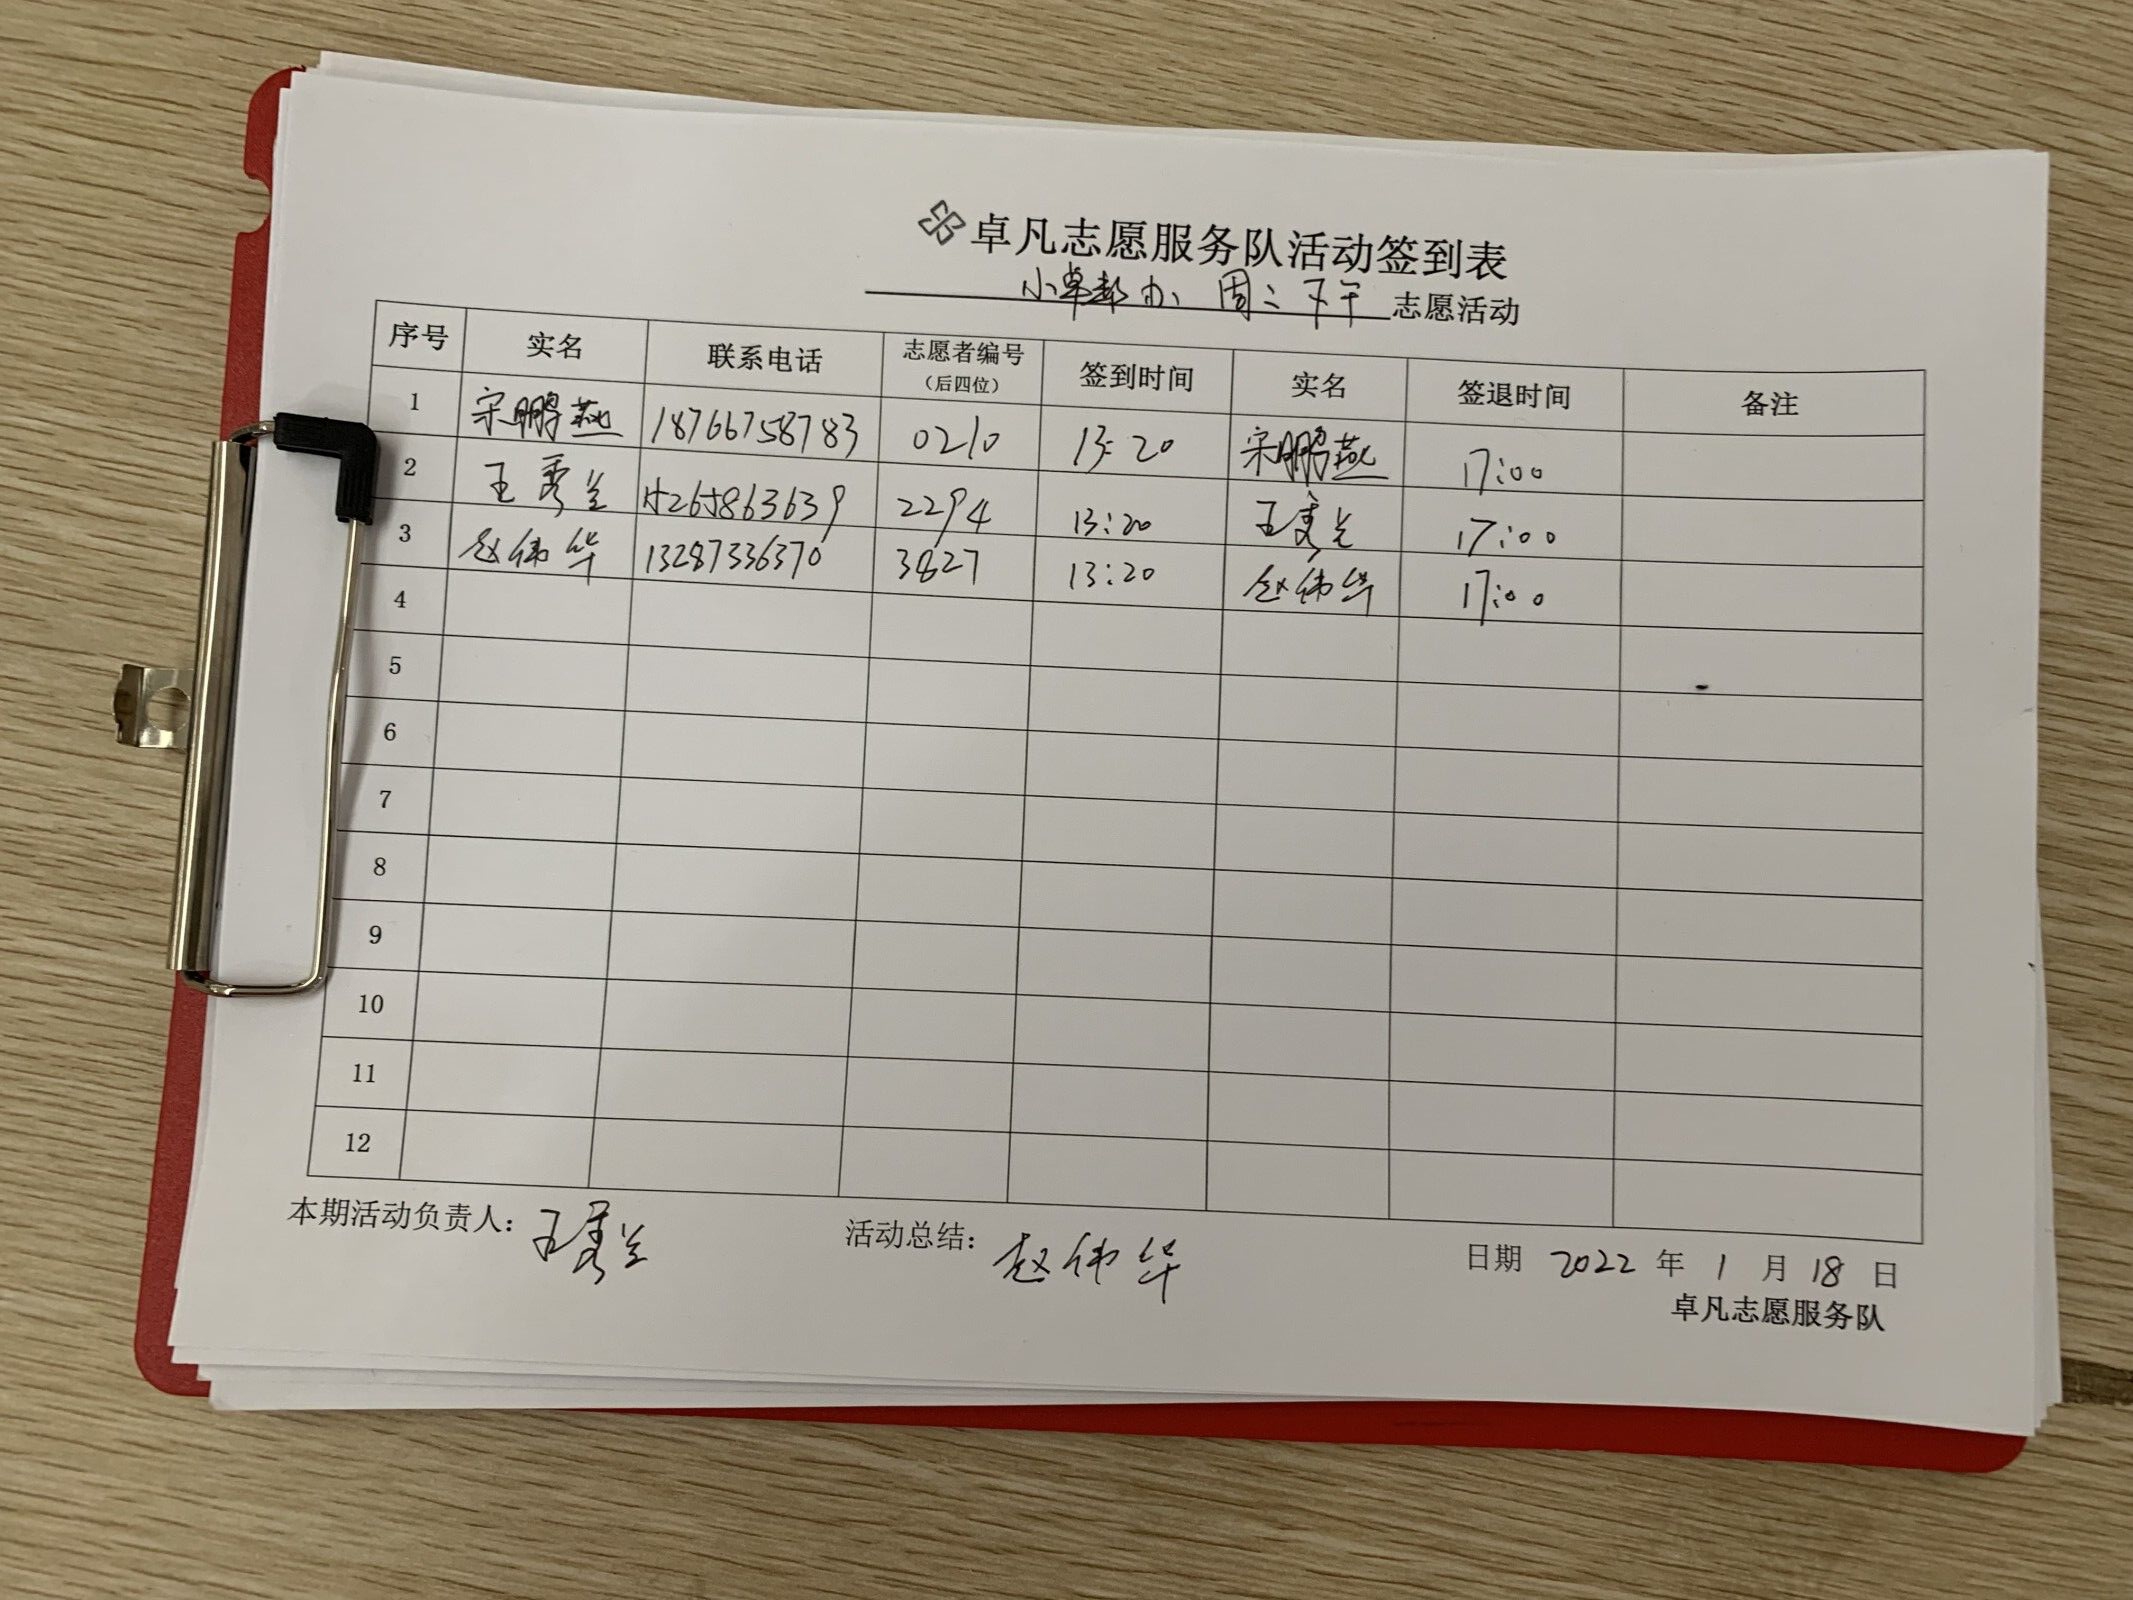 卓凡志愿服务队活动签到表
小卓帮办、周二下午 志愿活动
序号 实名 联系电话 志愿者编号（后四位） 签到时间 实名 签退时间 备注
1 宋鹏燕 18766758783 0210 13:20 宋鹏燕 17:00
2 王秀兰 15265863639 2294 13:20 王秀兰 17:00
3 赵伟华 13287336370 3827 13:20 赵伟华 17:00
4
5
6
7
8
9
10
11
12
本期活动负责人：王秀兰 活动总结：赵伟华 日期 2022 年 1 月 18 日
卓凡志愿服务队